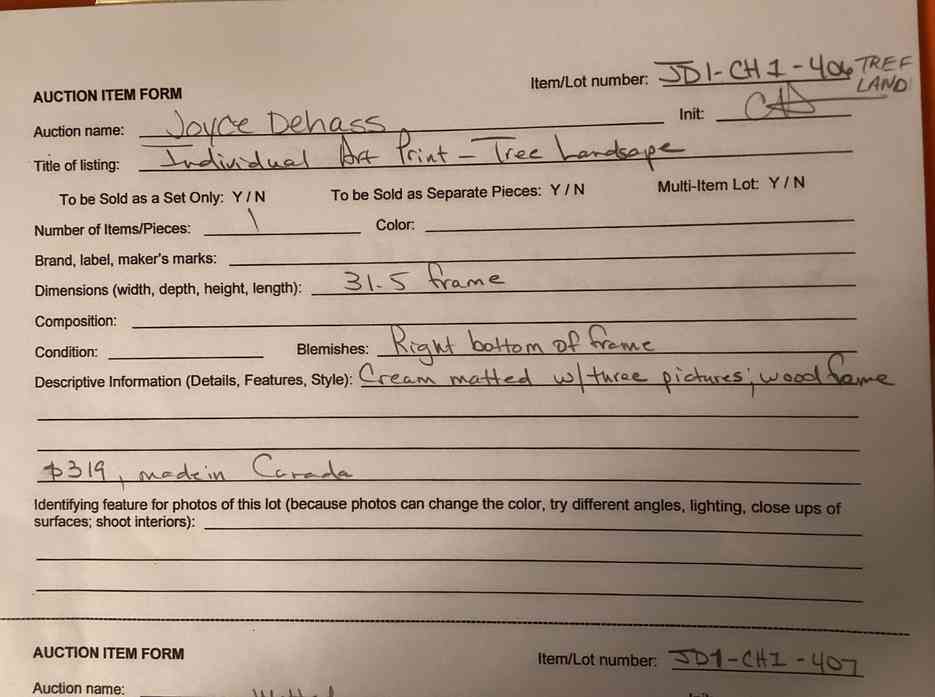 Item/Lot number: JD1-CH1-406 TREE
LAND
AUCTION ITEM FORM
Init: CAD
Auction name: Joyce Dehass
Title of listing: Individual Art Print - Tree Landsape
To be Sold as a Set Only: Y / N To be Sold as Separate Pieces: Y / N Multi-Item Lot: Y / N
Number of Items/Pieces: 1 Color:
Brand, label, maker's marks:
Dimensions (width, depth, height, length): 31.5 frame
Composition:
Condition: Blemishes: Right bottom of frame
Descriptive Information (Details, Features, Style): Cream matted w/three pictures; wood frame
$319, made in Canada
Identifying feature for photos of this lot (because photos can change the color, try different angles, lighting, close ups of
surfaces; shoot interiors):
AUCTION ITEM FORM
Item/Lot number: JD1-CH1-407
Auction name: